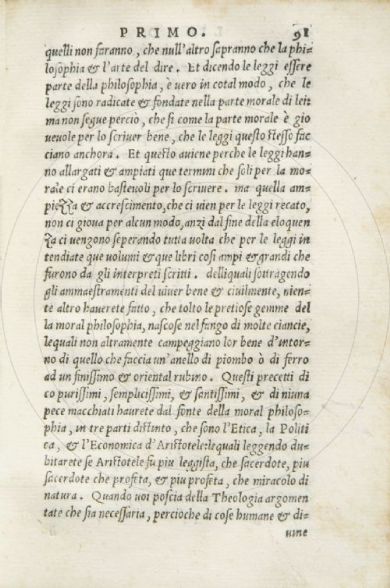 PRIMO. 91
quelli non faranno, che null'altro sapranno che la phi=
losophia & l'arte del dire. Et dicendo le leggi essere
parte della philosophia, è uero in cotal modo, che le
leggi sono radicate & fondate nella parte morale di lei:
ma non segue perciò, che si come la parte morale è gio
ueuole per lo scriuer bene, che le leggi questo stesso fac
ciano anchora. Et questo auiene perche le leggi han=
no allargati & ampiati que termini che soli per la mo=
rale ci erano basteuoli per lo scriuere. ma quella am=
piezza & accrescimento, che ci vien per le leggi recato,
non ci gioua per alcun modo, anzi dal fine della eloquen
za ci uengono seperando tutta uolta che per le leggi in
tendiate que uolumi & que libri cosi ampi & grandi che
furono da gli interpreti scritti. delliquali sottragendo
gli ammaestramenti del uiuer bene & ciuilmente, nien=
te altro hauerete fatto, che tolto le pretiose gemme del
la moral philosophia, nascose nel fango di molte ciancie,
lequali non altramente campeggiano lor bene d'intor=
no di quello che faccia un'anello di piombo ò di ferro
ad un finissimo & oriental rubino. Questi precetti di
co purissimi, semplicissimi, & santissimi, & di niuna
pece macchiati haurete dal fonte della moral philoso=
phia, in tre parti distinto, che sono l'Etica, la Politi
ca, & l'Economica d'Aristotele: lequali leggendo du=
bitarete se Aristotele fu piu leggista, che sacerdote, piu
sacerdote che profeta, & piu profeta, che miracolo di
natura. Quando uoi poscia della Theologia argomen
tate che sia necessaria, percioche di cose humane & di=
uine